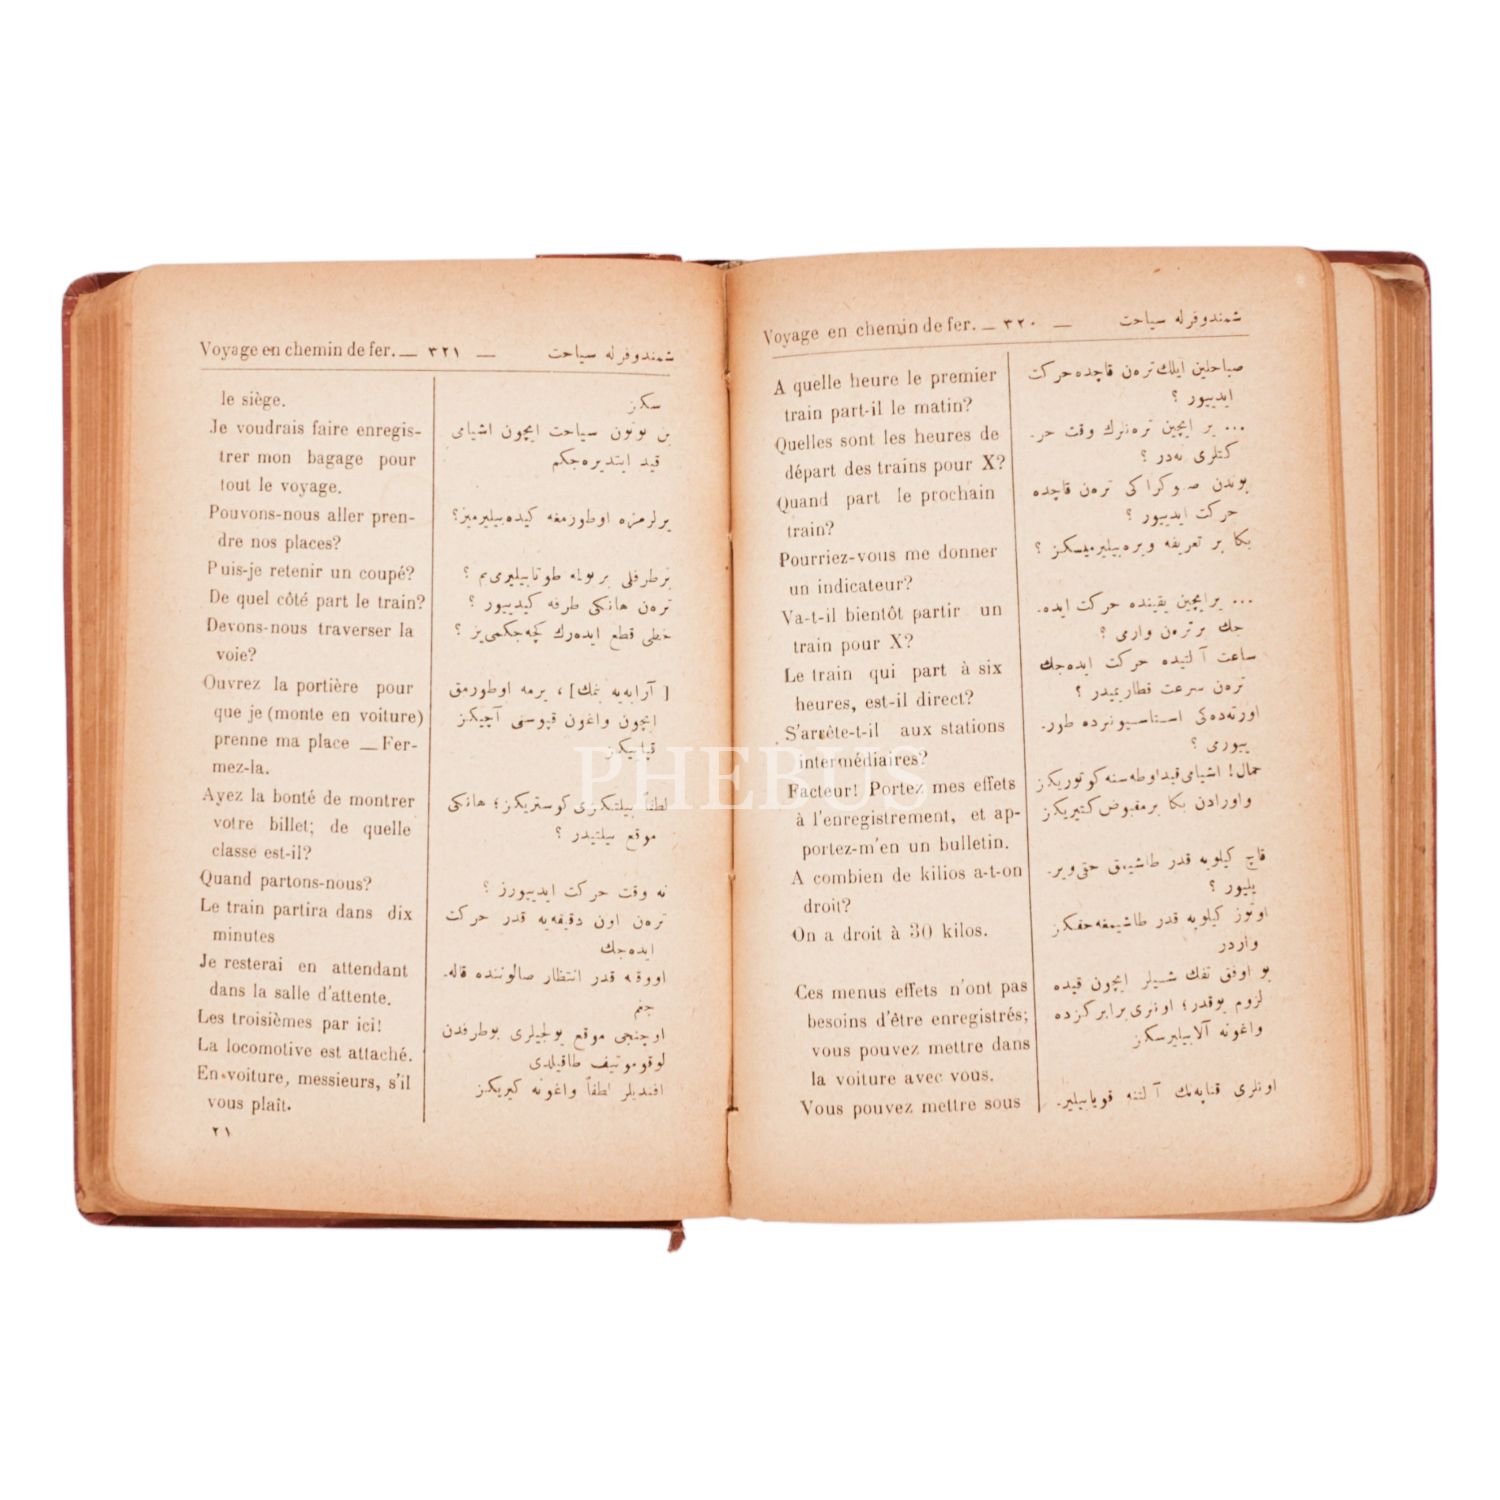 Voyage en chemin de fer. — ٣٢٠ — شمندوفرله سياحت
A quelle heure le premier
train part-il le matin?
Quelles sont les heures de
départ des trains pour X?
Quand part le prochain
train?
Pourriez-vous me donner
un indicateur?
Va-t-il bientôt partir un
train pour X?
Le train qui part à six
heures, est-il direct?
S'arrête-t-il aux stations
intermédiaires?
Facteur! Portez mes effets
à l'enregistrement, et ap-
portez-m'en un bulletin.
A combien de kilios a-t-on
droit?
On a droit à 30 kilos.
Ces menus effets n'ont pas
besoins d'être enregistrés;
vous pouvez mettre dans
la voiture avec vous.
Vous pouvez mettre sous
صباحلين ايلك ترەن قاچده حركت
ايدييور ؟
... ير ايچين ترەنلرك وقت حر-
كتلرى نەدر ؟
بوندن صوكراكى ترەن قاچده
حركت ايدييور ؟
بكا بر تعريفه ويرەبيليرميسكز ؟
... يرايچين يقينده حركت ايده-
جك برترەن وارمى ؟
ساعت آلتيده حركت ايدەجك
ترەن سرعت قطاريميدر ؟
اورتەدەكى استاسيونرده طور-
ييورمى ؟
حمال! اشيامى قيداوطەسنه كوتوريكز
و اورادن بكا بر مقبوض كتيريكز
قاچ كيلويه قدر طاشيمق حقى وير-
يليور ؟
اوتوز كيلويه قدر طاشيمغه حقكز
واردر
بو اوفق تفك شيلر ايچون قيده
لزوم يوقدر؛ اونرى برابركزده
واغونه آلابيليرسكز
اونلرى قناپەنك آلتنه قويابيلير-
Voyage en chemin de fer. — ٣٢١ — شمندوفرله سياحت
le siège.
Je voudrais faire enregis-
trer mon bagage pour
tout le voyage.
Pouvons-nous aller pren-
dre nos places?
Puis-je retenir un coupé?
De quel côté part le train?
Devons-nous traverser la
voie?
Ouvrez la portière pour
que je (monte en voiture)
prenne ma place — Fer-
mez-la.
Ayez la bonté de montrer
votre billet; de quelle
classe est-il?
Quand partons-nous?
Le train partira dans dix
minutes
Je resterai en attendant
dans la salle d'attente.
Les troisièmes par ici!
La locomotive est attaché.
En voiture, messieurs, s'il
vous plaît.
سكز
بن بوتون سياحت ايچون اشيامى
قيد ايتديرەجكم
يرلرمزه اوطورمغه كيدەبيليرميز؟
ترەن هانكى طرفه كيدييور ؟
خطى قطع ايدەرك كچەجكمى يز ؟
[ آرابەيه بنمك] ، يرمه اوطورمق
ايچون واغون قپوسنى آچيكز
قپاييكز
لطفاً بيلتكزى كوستريكز؛ هانكى
موقع بيلتيدر ؟
نه وقت حركت ايدييورز ؟
ترەن اون دقيقەيه قدر حركت
ايدەجك
اووقته قدر انتظار صالوننده قالە-
جغم
اوچنجى موقع يولجيلرى بوطرفدن
لوقوموتيف طاقيلدى
افنديلر لطفاً واغونه كيريكز
٢١
PHEBUS